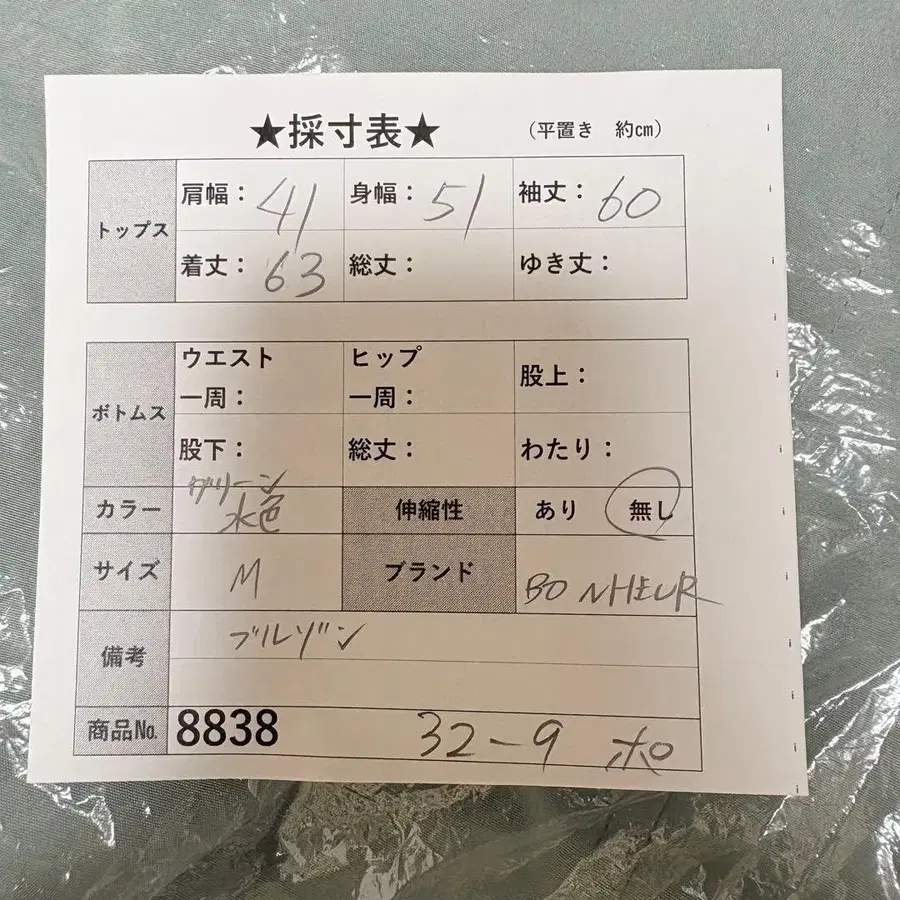 ★採寸表★ (平置き 約cm)
トップス
肩幅: 41 身幅: 51 袖丈: 60
着丈: 63 総丈: ゆき丈:
ボトムス
ウエスト一周: ヒップ一周: 股上:
股下: 総丈: わたり:
グリーン
カラー 水色 伸縮性 あり 無し
サイズ M ブランド BONHEUR
備考 ブルゾン
商品No. 8838 32-9 ポ